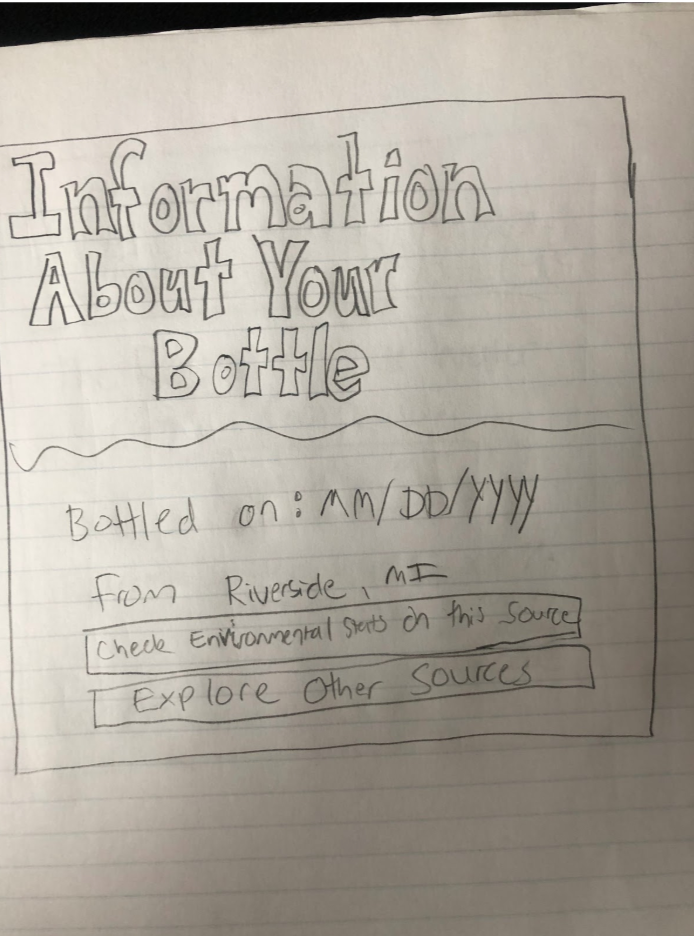 Information
About Your
Bottle
Bottled on: MM/DD/YYYY
From Riverside, MI
Check Environmental Stats on this Source
Explore Other Sources